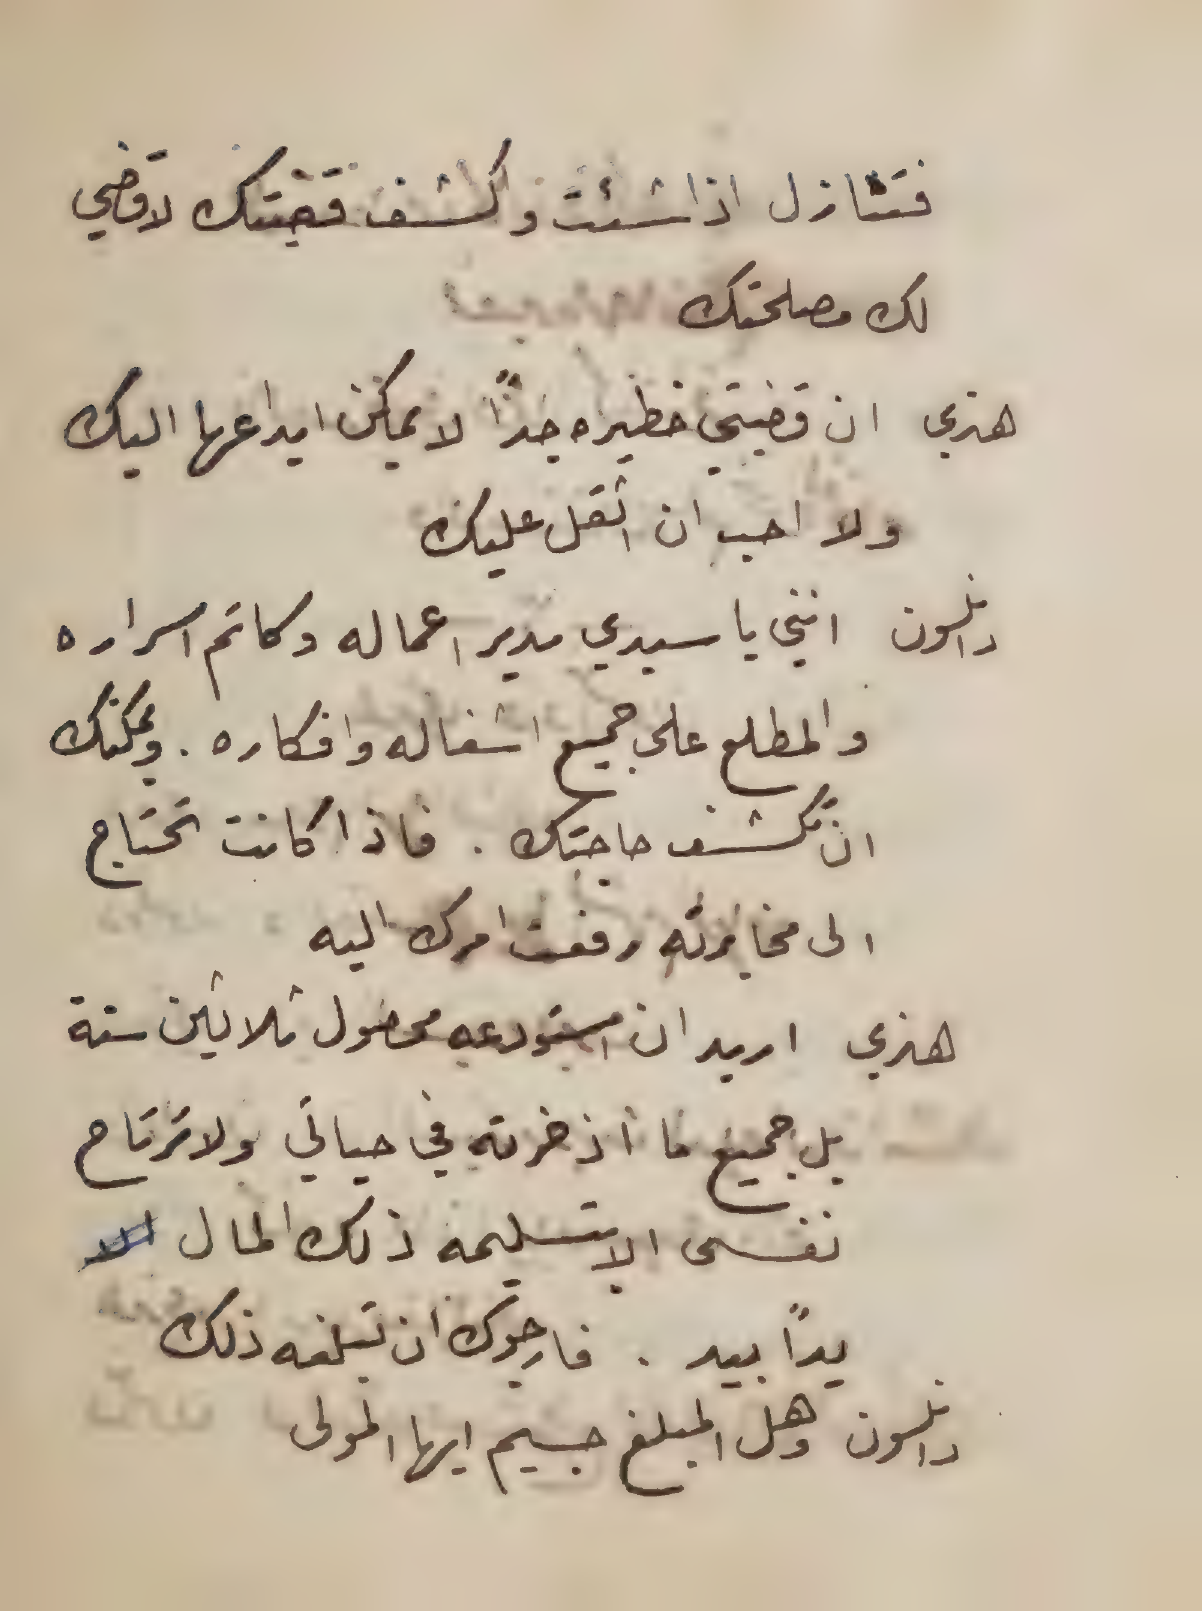 فتنازل اذا شئت وكشف قضيتك لاقضي
لك مصلحتك
هنري ان قضيتي خطيره جدًا لا يمكن ايداعها اليك
ولا احب ان اثقل عليك
دانلسون انني يا سيدي مدير اعماله وكاتم اسراره
والمطلع على جميع اشغاله وافكاره . ويمكنك
ان تكشف حاجتك . فاذا كانت تحتاج
الى مخابرته رفعت امرك اليه
هنري اريد ان استودعه محصول ثلاثين سنة
بل جميع ما اذخرته في حياتي ولا ترتاح
نفسى الا بتسليمه ذلك المال
يدًا بيد . فارجوك ان تبلغه ذلك
دانلسون وهل المبلغ جسيم ايها المولى